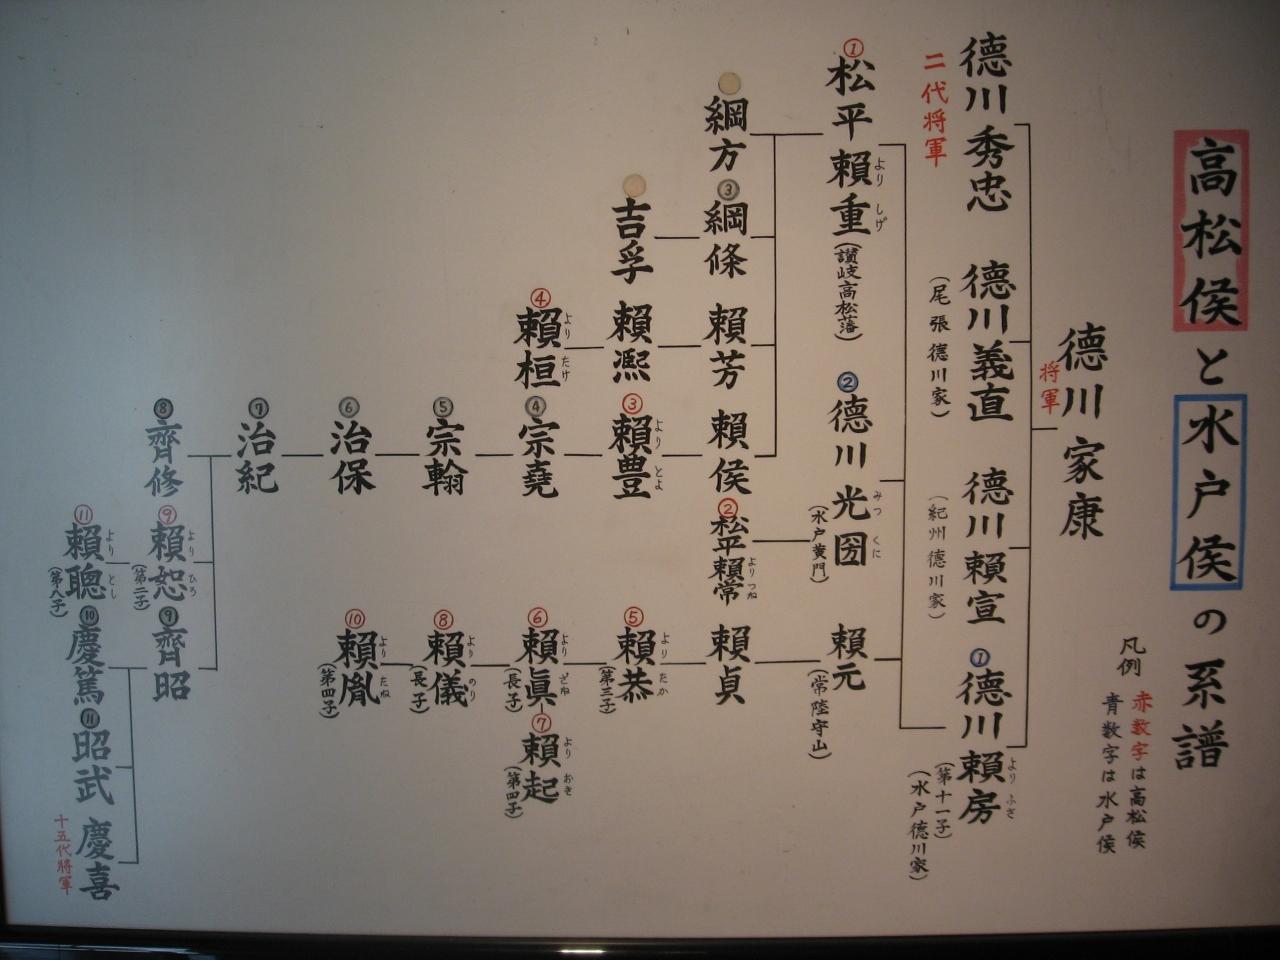 高松侯と水戸侯の系譜
凡例
赤数字は高松侯
青数字は水戸侯
德川家康
将軍
德川秀忠
二代将軍
德川義直
(尾張德川家)
德川賴宣
(紀州德川家)
①德川賴房
よりふさ
(第十一子)
(水戸德川家)
①松平賴重
よりしげ
(讃岐高松藩)
②德川光圀
みつくに
(水戸黄門)
賴元
(常陸守山)
綱方
③綱條
賴芳
賴侯
②松平賴常
よりつね
賴貞
吉孚
賴凞
③賴豊
よりとよ
⑤賴恭
よりたか
(第三子)
④賴桓
よりたけ
④宗堯
⑥賴眞
よりざね
(長子)
⑦賴起
よりおき
(第四子)
⑤宗翰
⑧賴儀
よりのり
(長子)
⑥治保
⑩賴胤
よりたね
(第四子)
⑦治紀
⑧齊修
⑨賴恕
よりひろ
(第二子)
⑨齊昭
⑪賴聰
よりとし
(第八子)
⑩慶篤
⑪昭武
慶喜
十五代將軍